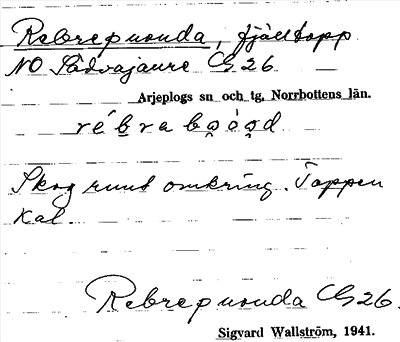 Rebrepuonda, fjälltopp
NO Sädvajaure G 26
Arjeplogs sn och tg, Norrbottens län.
Skog runt omkring. Toppen
kal.
Rebrepuonda G 26.
Sigvard Wallström, 1941.